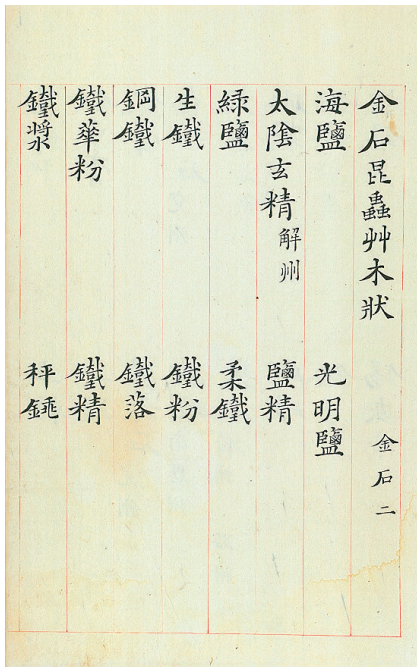 金石昆蟲艸木狀 金石二
海鹽 光明鹽
太陰玄精 解州 鹽精
綠鹽 柔鐵
生鐵 鐵粉
鋼鐵 鐵落
鐵華粉 鐵精
鐵漿 秤錘